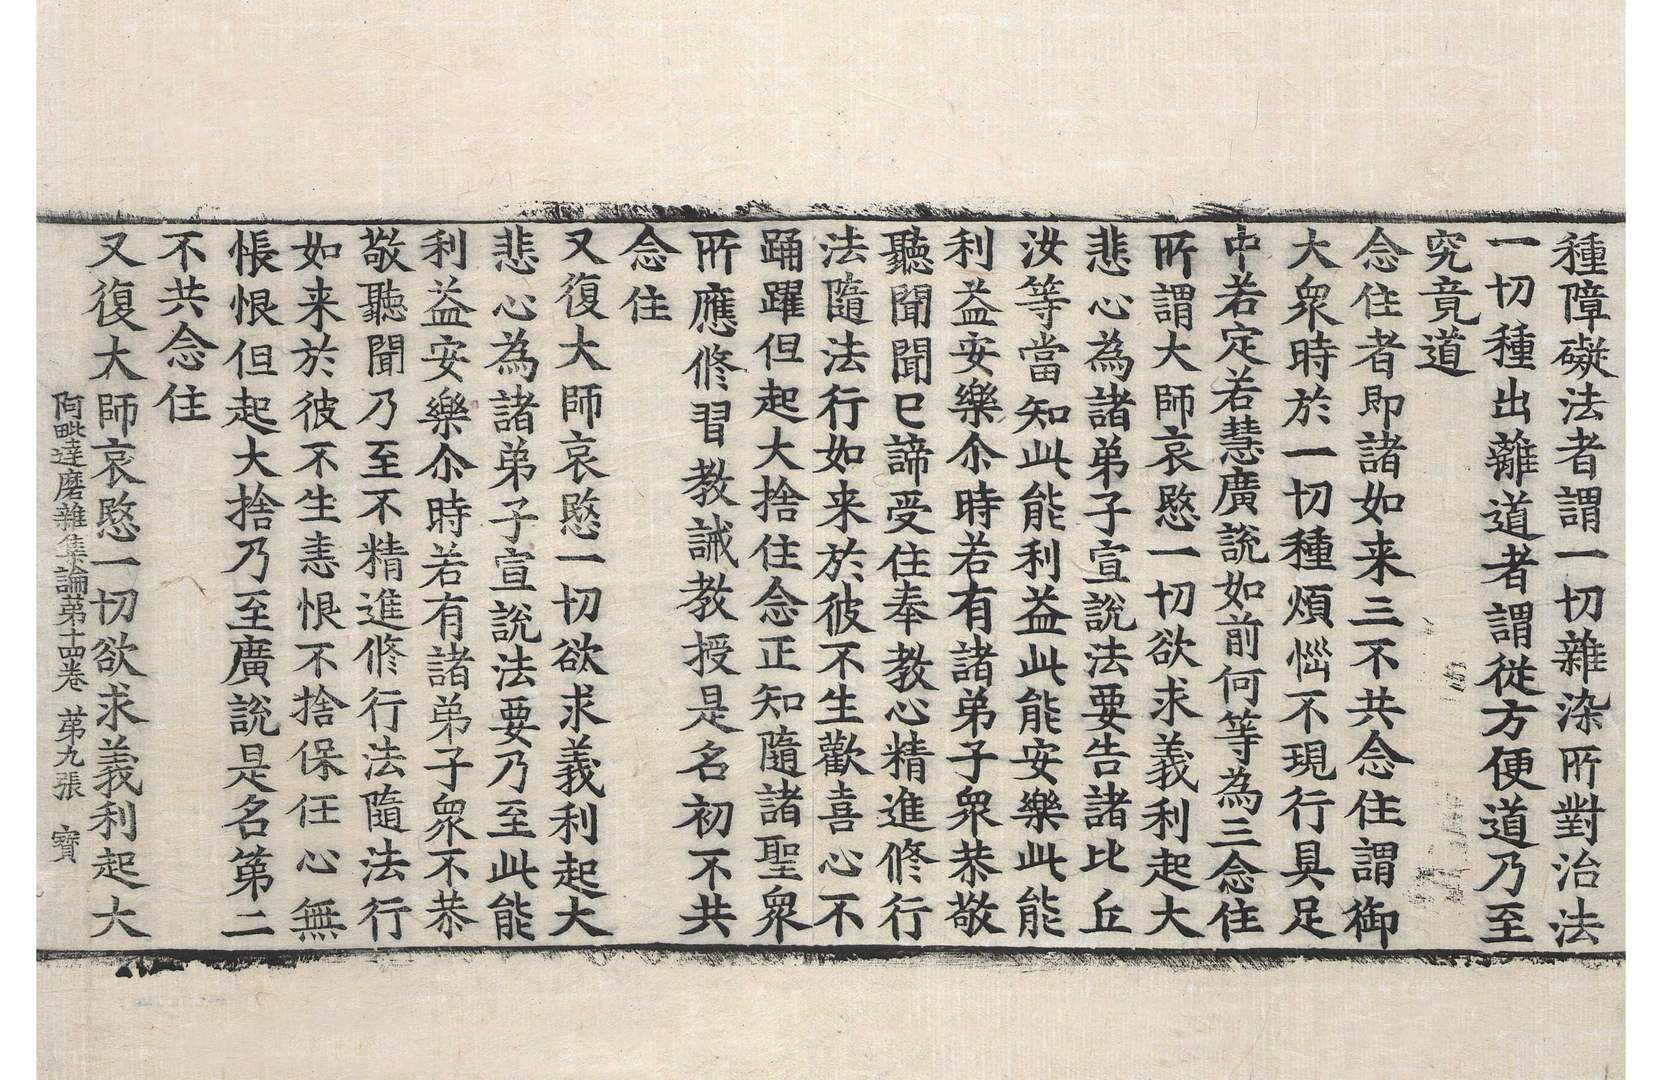 種障礙法者謂一切雜染所對治法
一切種出離道者謂從方便道乃至
究竟道
念住者即諸如来三不共念住謂御
大衆時於一切種煩惱不現行具足
中若定若慧廣說如前何等為三念住
所謂大師哀愍一切欲求義利起大
悲心為諸弟子宣說法要告諸比丘
汝等當知此能利益此能安樂此能
利益安樂尒時若有諸弟子衆恭敬
聽聞聞已諦受住奉教心精進修行
法隨法行如来於彼不生歡喜心不
踊躍但起大捨住念正知隨諸聖衆
所應修習教誡教授是名初不共
念住
又復大師哀愍一切欲求義利起大
悲心為諸弟子宣說法要乃至此能
利益安樂尒時若有諸弟子衆不恭
敬聽聞乃至不精進修行法隨法行
如来於彼不生恚恨不捨保任心無
悵恨但起大捨乃至廣說是名第二
不共念住
又復大師哀愍一切欲求義利起大
阿毗達磨雜集論第十四卷 苐九張 寶